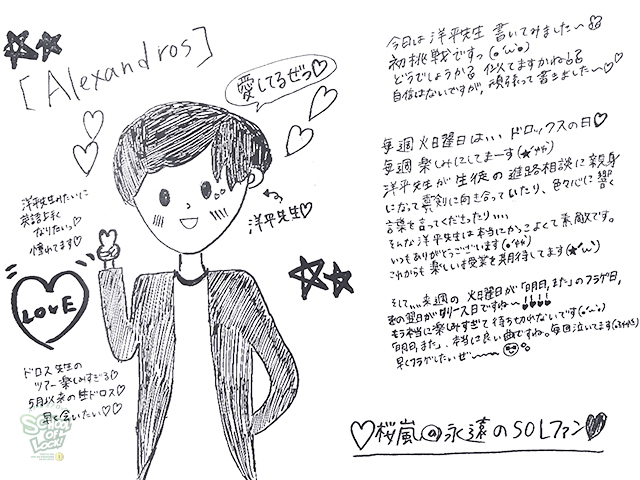 [Alexandros]
愛してるぜっ♡
洋平先生みたいに
英語上手く
なりたいっ
憧れてます♡
洋平先生♡
LOVE
ドロス先生の
ツアー楽しみすぎる♡
5月以来の生ドロス♡
早く会いたい♡♡
SCHOOL OF LOCK!
今日は洋平先生書いてみました〜
初挑戦ですっ
どうでしょうかね 似てますかね
自信はないですが、頑張って書きました〜♡♡
毎週火曜日はいい ドロックスの日♡
毎週楽しみにしてまーす
洋平先生が生徒の進路相談に親身
になって真剣に向き合っていたり、色々心に響く
言葉を言ってくださったり、、、
そんな洋平先生は本当にかっこよくて素敵です。
いつもありがとうございます
これからも楽しい授業を期待してます
そして、、、来週の 火曜日が「明日、また」のフラゲ日,
その翌日がリリース日ですね〜
もう本当に楽しみすぎて待ち切れないです
「明日、また」、本当に良い曲ですね。毎回泣いてます
早くフラゲしたいぜ〜
♡桜嵐@永遠のSOLファン♥